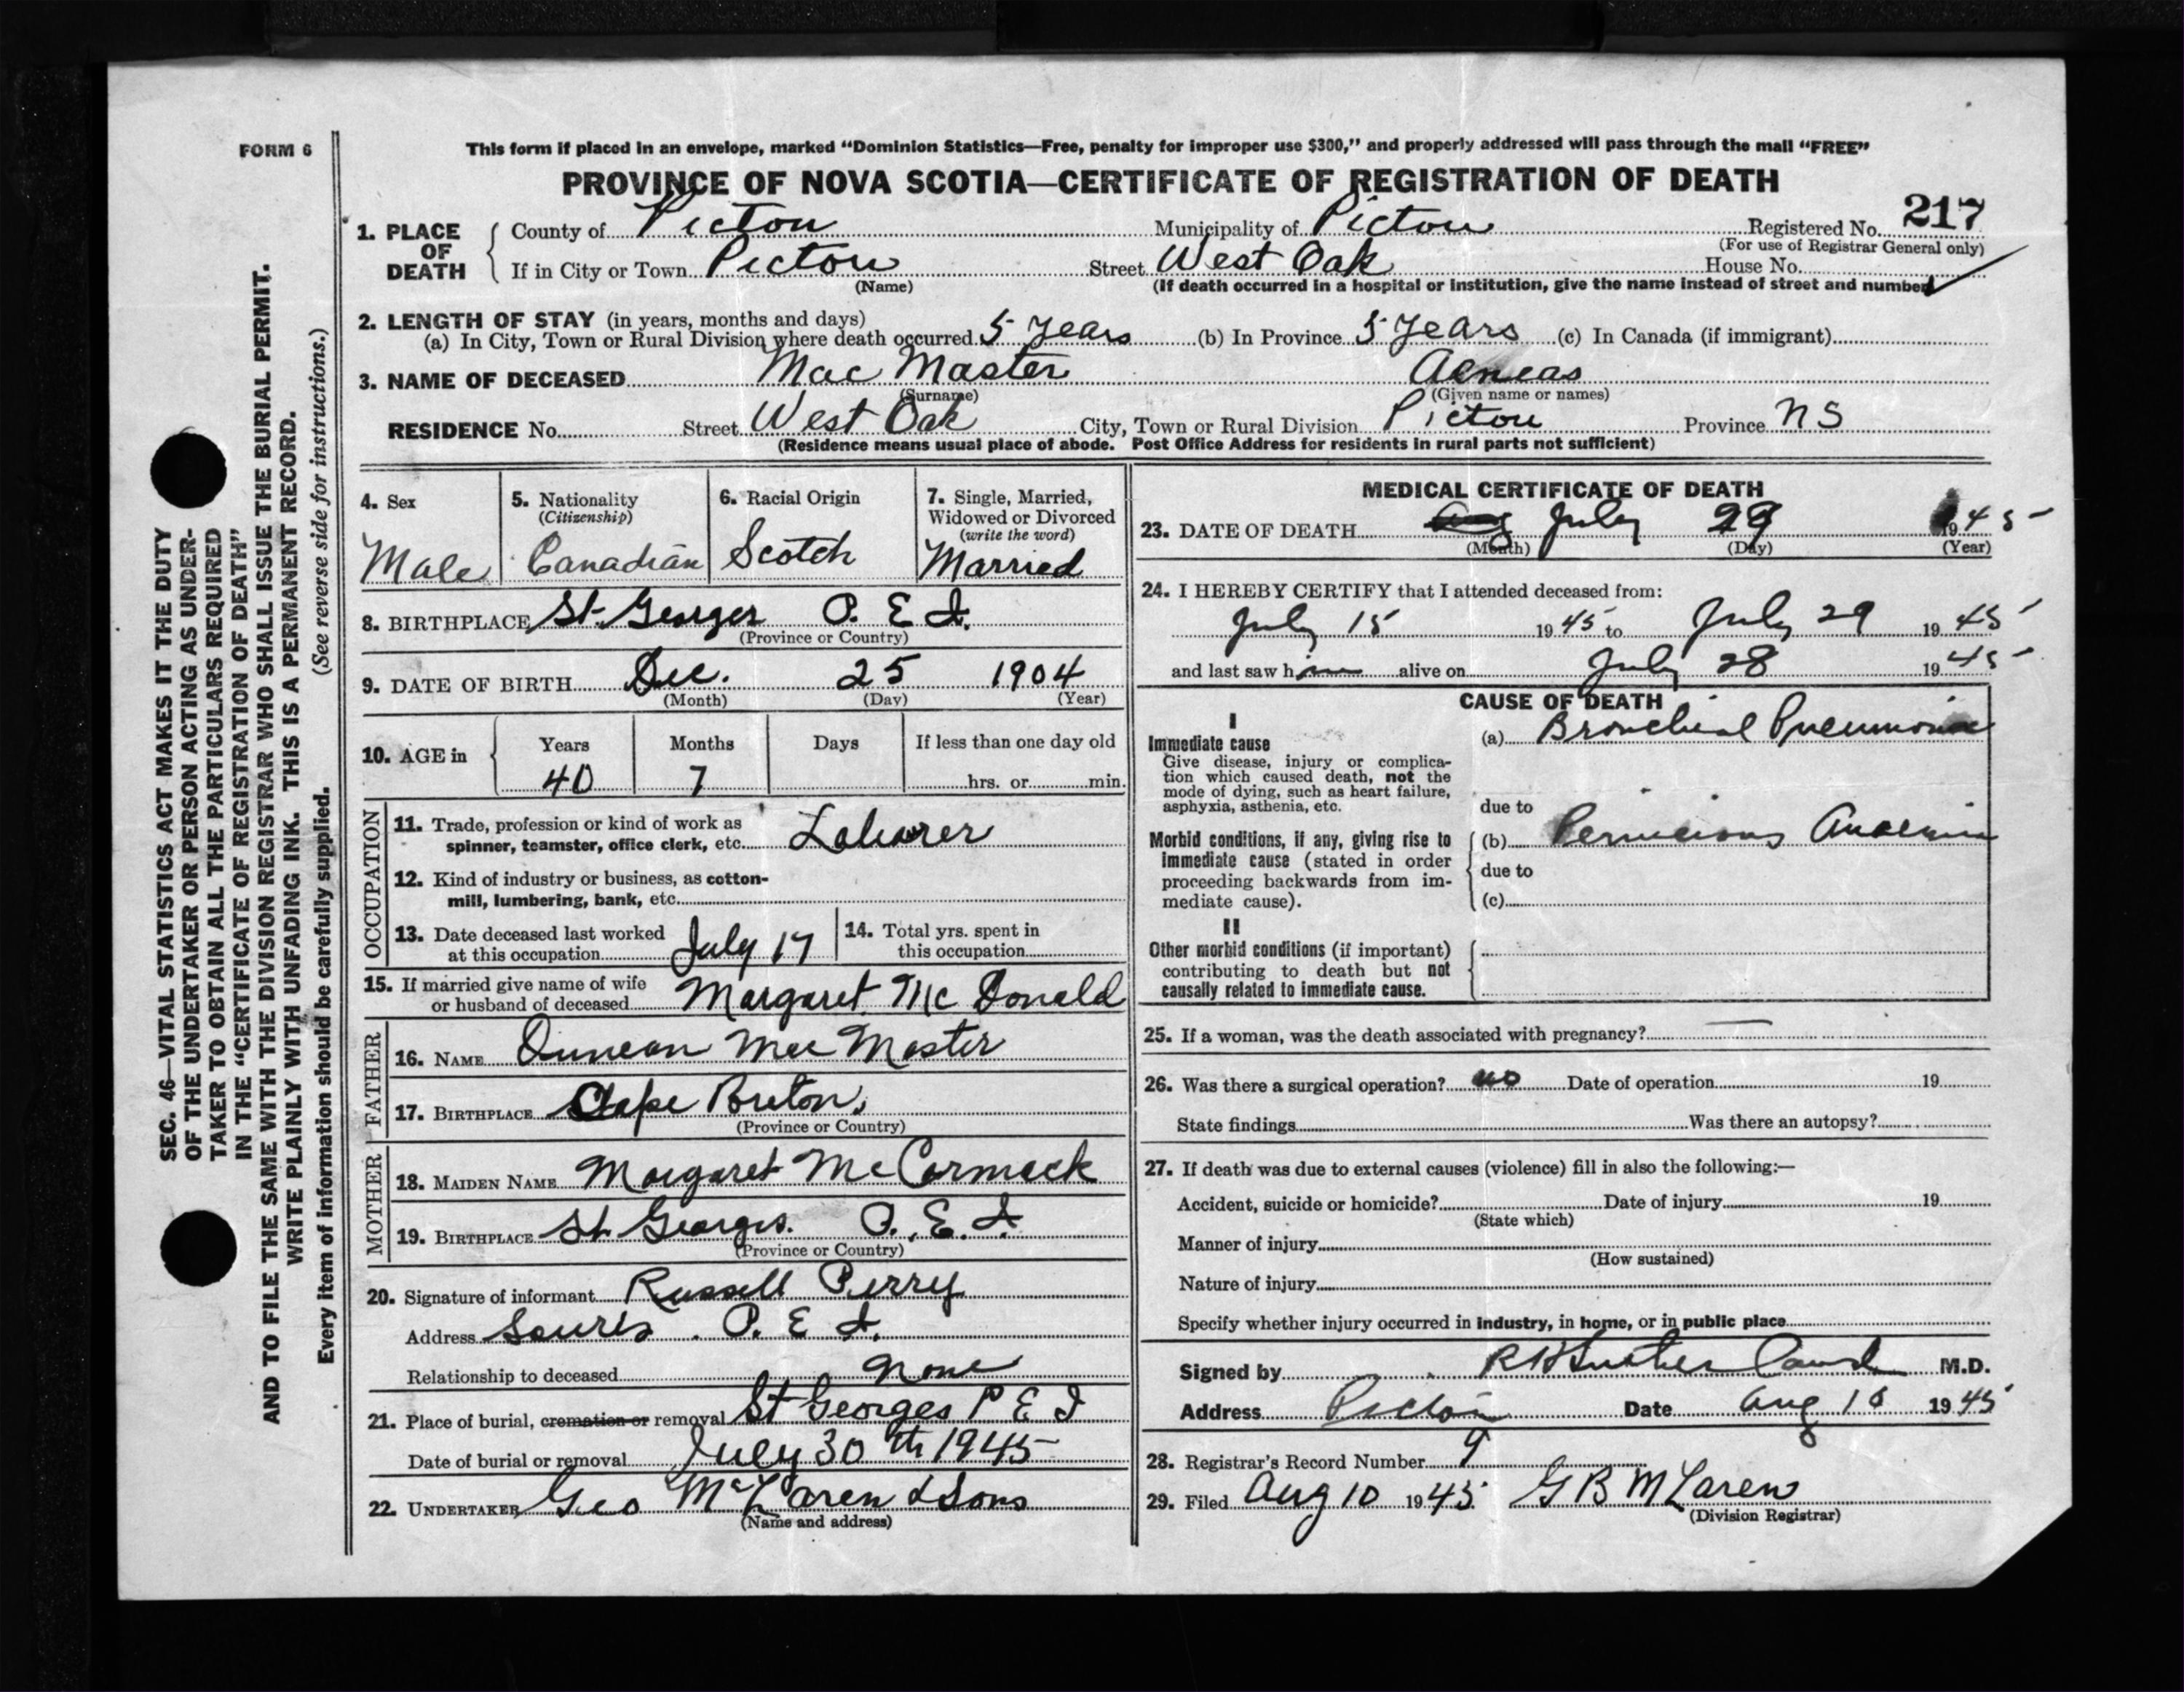 FORM 6
This form if placed in an envelope, marked “Dominion Statistics—Free, penalty for improper use $300,” and properly addressed will pass through the mail “FREE”
PROVINCE OF NOVA SCOTIA—CERTIFICATE OF REGISTRATION OF DEATH
217
1. PLACE OF DEATH County of Pictou Municipality of Pictou Registered No.
(For use of Registrar General only)
If in City or Town Pictou Street West Oak House No.
(Name) (If death occurred in a hospital or institution, give the name instead of street and number)
2. LENGTH OF STAY (in years, months and days)
(a) In City, Town or Rural Division where death occurred 5 years (b) In Province 5 years (c) In Canada (if immigrant)
3. NAME OF DECEASED Mac Master Aeneas
(Surname) (Given name or names)
RESIDENCE No. Street West Oak City, Town or Rural Division Pictou Province NS
(Residence means usual place of abode. Post Office Address for residents in rural parts not sufficient)
4. Sex Male
5. Nationality (Citizenship) Canadian
6. Racial Origin Scotch
7. Single, Married, Widowed or Divorced (write the word) Married
8. BIRTHPLACE St. Georges P. E I.
(Province or Country)
9. DATE OF BIRTH Dec. 25 1904
(Month) (Day) (Year)
10. AGE in Years Months Days If less than one day old
40 7 hrs. or min.
OCCUPATION
11. Trade, profession or kind of work as
spinner, teamster, office clerk, etc. Laborer
12. Kind of industry or business, as cotton-
mill, lumbering, bank, etc.
13. Date deceased last worked
at this occupation July 17
14. Total yrs. spent in
this occupation
15. If married give name of wife
or husband of deceased Margaret McDonald
FATHER
16. NAME Duncan Mac Master
17. BIRTHPLACE Cape Breton
(Province or Country)
MOTHER
18. MAIDEN NAME Margaret McCormack
19. BIRTHPLACE St Georges. P. E. I.
(Province or Country)
20. Signature of informant Russell Perry
Address Souris. P. E I.
Relationship to deceased none
21. Place of burial, cremation or removal St Georges P E I
Date of burial or removal July 30th 1945
22. UNDERTAKER Geo McLaren & Sons
(Name and address)
MEDICAL CERTIFICATE OF DEATH
23. DATE OF DEATH Aug July 29 1945
(Month) (Day) (Year)
24. I HEREBY CERTIFY that I attended deceased from:
July 15 1945 to July 29 1945
and last saw him alive on July 28 1945
CAUSE OF DEATH
I
Immediate cause
Give disease, injury or complica-
tion which caused death, not the
mode of dying, such as heart failure,
asphyxia, asthenia, etc.
(a) Bronchial Pneumonia
due to
Morbid conditions, if any, giving rise to
immediate cause (stated in order
proceeding backwards from im-
mediate cause).
(b) Pernicious Anaemia
due to
(c)
II
Other morbid conditions (if important)
contributing to death but not
causally related to immediate cause.
25. If a woman, was the death associated with pregnancy? —
26. Was there a surgical operation? no Date of operation 19
State findings Was there an autopsy?
27. If death was due to external causes (violence) fill in also the following:—
Accident, suicide or homicide? Date of injury 19
(State which)
Manner of injury
(How sustained)
Nature of injury
Specify whether injury occurred in industry, in home, or in public place
Signed by M.D.
Address Pictou Date Aug 1945
28. Registrar's Record Number 9
29. Filed Aug 10 1945 G B McLaren
(Division Registrar)
SEC. 46—VITAL STATISTICS ACT MAKES IT THE DUTY
OF THE UNDERTAKER OR PERSON ACTING AS UNDER-
TAKER TO OBTAIN ALL THE PARTICULARS REQUIRED
IN THE “CERTIFICATE OF REGISTRATION OF DEATH”
AND TO FILE THE SAME WITH THE DIVISION REGISTRAR WHO SHALL ISSUE THE BURIAL PERMIT.
WRITE PLAINLY WITH UNFADING INK. THIS IS A PERMANENT RECORD.
Every item of information should be carefully supplied. (See reverse side for instructions.)